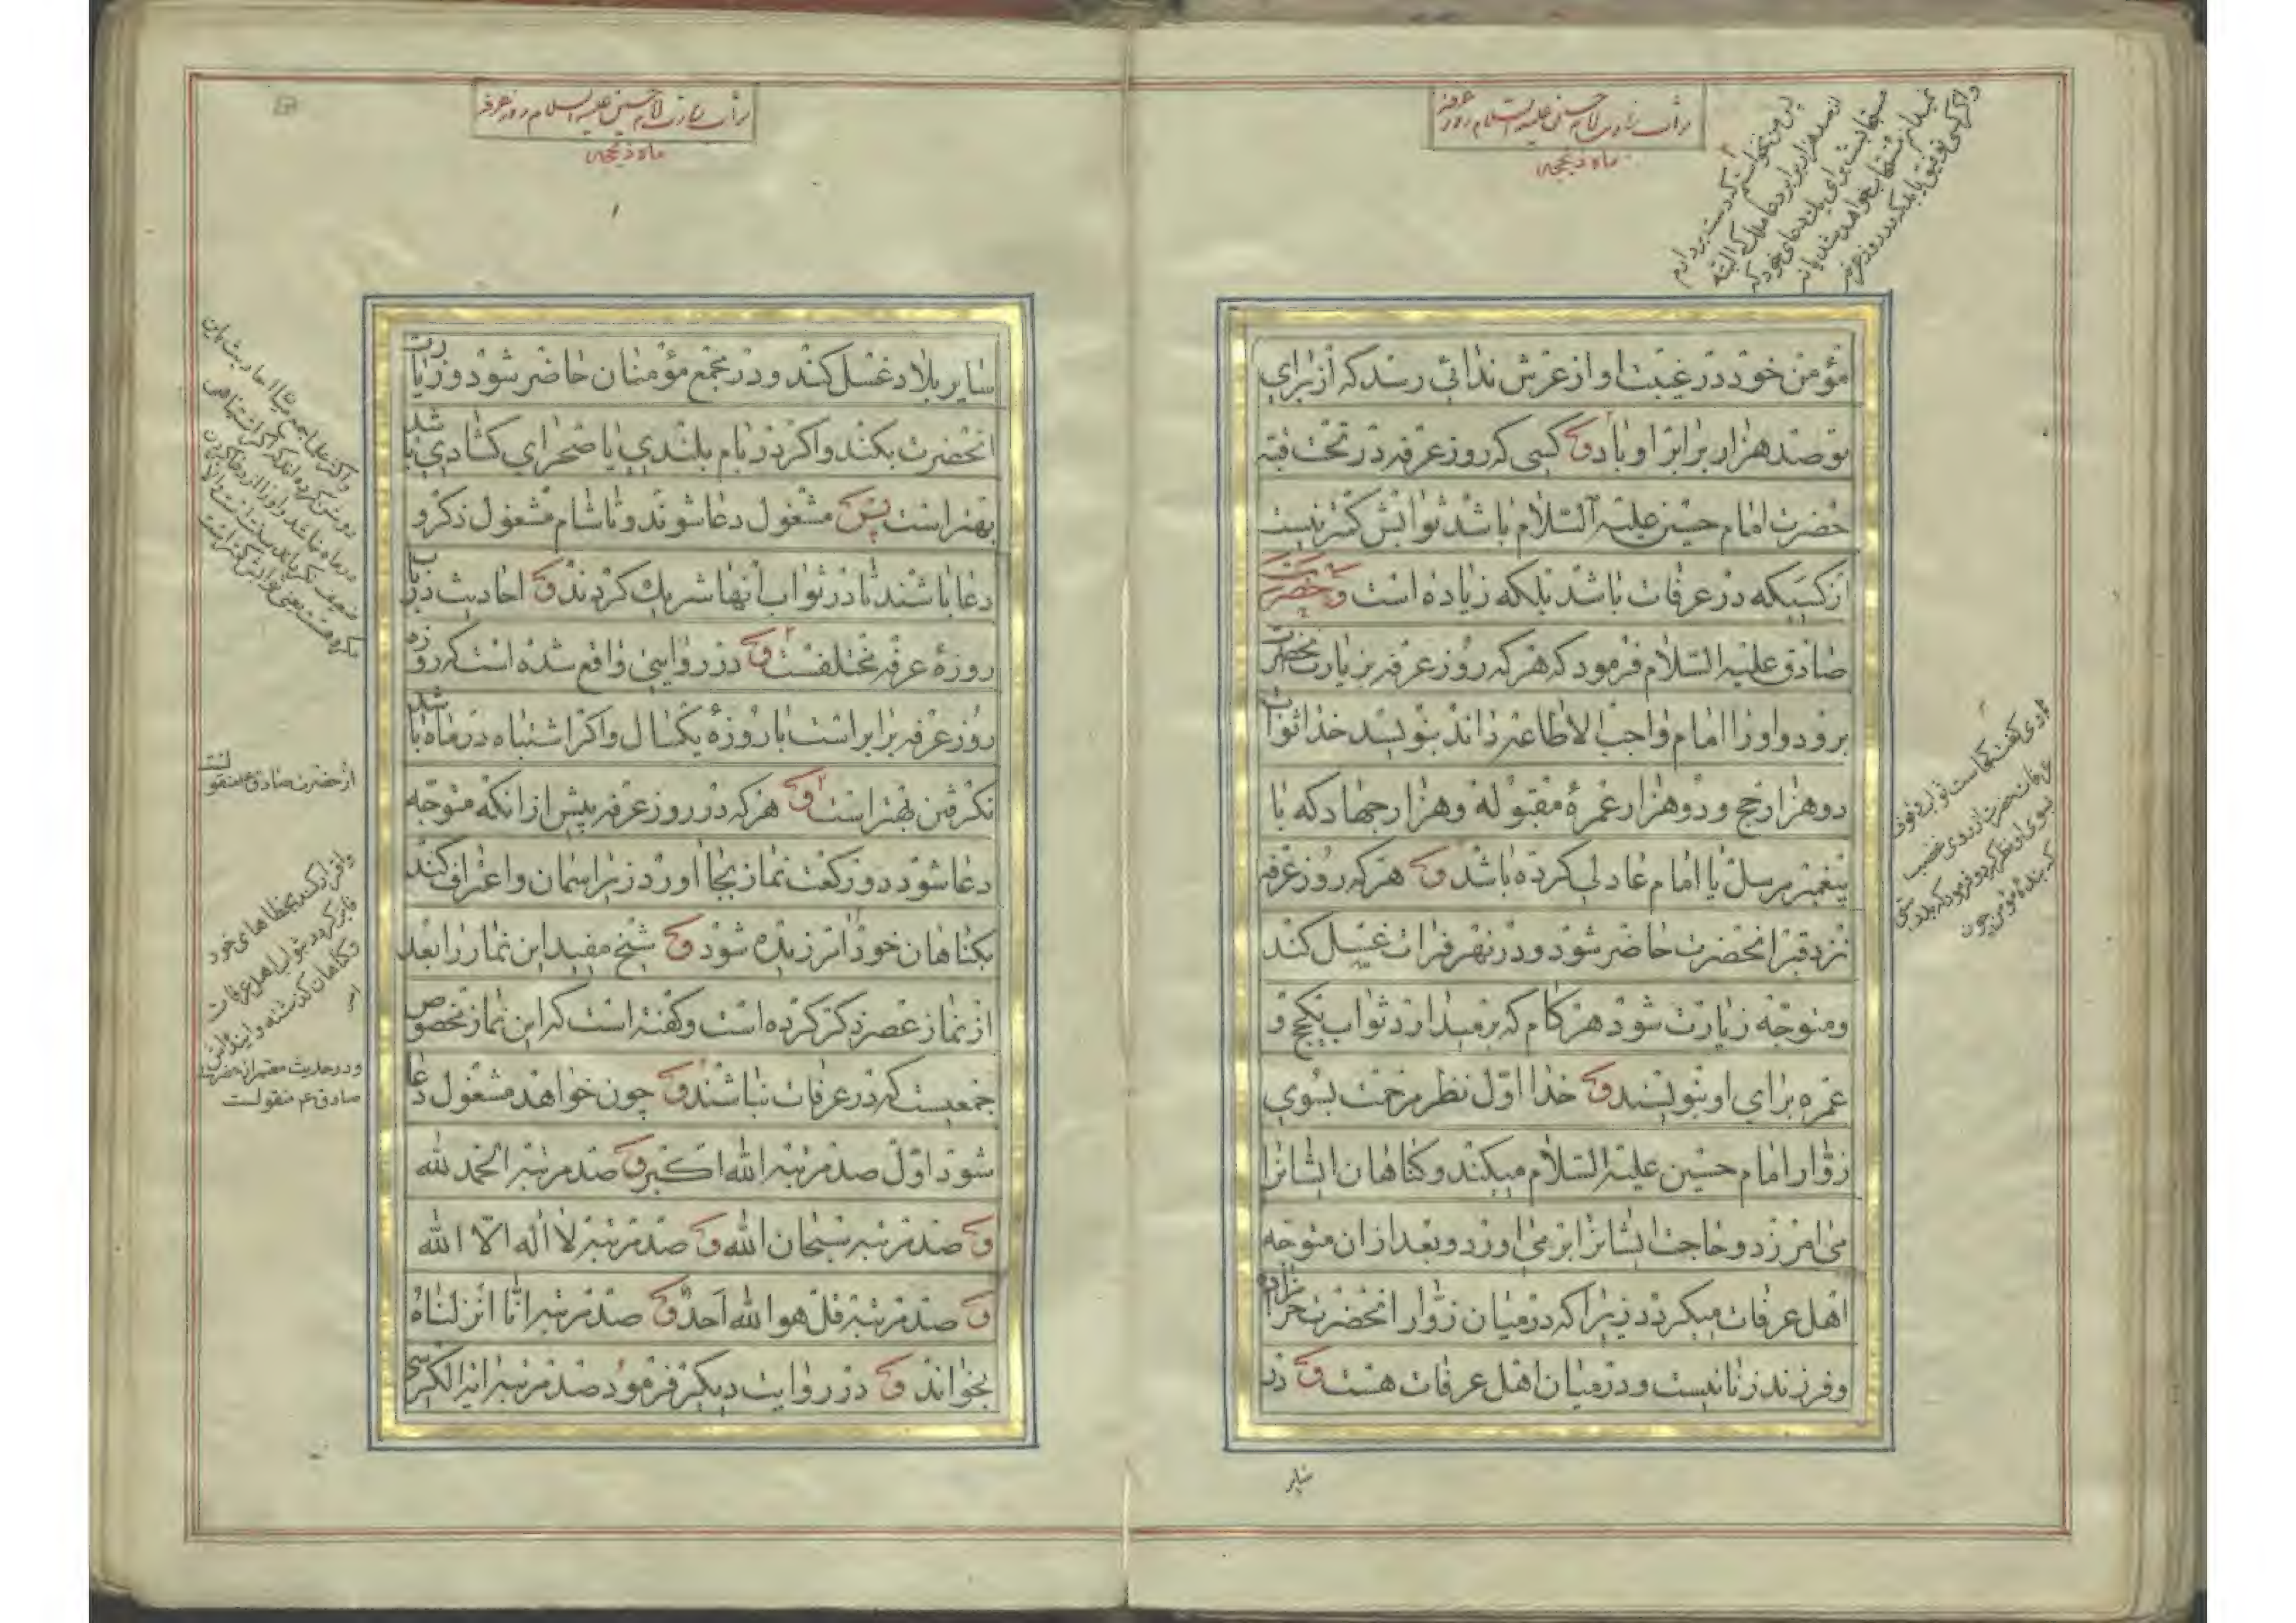 ثواب زیارت امام حسین علیه السلام روز عرفه
ماه ذیحجه
پس من نخواستم که دست بردارم
از صد هزار برابر دعا ملک که البته
مستجابست برای یک دعای خود که
نمیدانم مستجاب خواهد شد یا نه
و اگر کسی توفیق یابد که در روز عرفه
مؤمن خود در غیبت او از عرش ندائی رسد که از برای
تو صد هزار برابر او باد و کسی که روز عرفه در تحت قبه
حضرت امام حسین علیه السلام باشد ثوابش کمتر نیست
از کسیکه در عرفات باشد بلکه زیاده است و حضرت
صادق علیه السلام فرمود که هر که روز عرفه بزیارت آنحضرت
برود و او را امام واجب الاطاعه داند بنویسد خدا ثواب
دو هزار حج و دو هزار عمرهٔ مقبوله و هزار جهاد که با
پیغمبر مرسل یا امام عادلی کرده باشد و هر که روز عرفه
نزد قبر آنحضرت حاضر شود و در نهر فرات غسل کند
و متوجه زیارت شود هر گام که بر میدارد ثواب یکحج و
عمره برای او بنویسند و خدا اول نظر مرحمت بسوی
زوار امام حسین علیه السلام میکند و گناهان ایشانرا
می آمرزد و حاجت ایشانرا بر می آورد و بعد از آن متوجه
اهل عرفات میگردد زیرا که در میان زوار آنحضرت حرامزاده
و فرزند زنا نیست و در میان اهل عرفات هست و در
راوی گفت کجاست ثواب وقوف
عرفات حضرت از روی غضب
بسوی او نظر کرد و فرمود که بدرستی
که بندهٔ مؤمن چون
سایر
ثواب زیارت امام حسین علیه السلام روز عرفه
ماه ذیحجه
سایر بلاد غسل کند و در مجمع مؤمنان حاضر شود و زیارت
آنحضرت بکند و اگر در بام بلندی یا صحرای گشادی باشد
بهتر است پس مشغول دعا شوند و تا شام مشغول ذکر و
دعا باشند تا در ثواب آنها شریک گردند و احادیث در باب
روزهٔ عرفه مختلفست و در روایتی واقع شده است که روزه
روز عرفه برابر است با روزهٔ یکسال و اگر اشتباه در ماه باشد
نگرفتن بهتر است و هر که در روز عرفه پیش از آنکه متوجه
دعا شود دو رکعت نماز بجا آورد در زیر آسمان و اعتراف کند
بگناهان خود آمرزیده شود و شیخ مفید این نماز را بعد
از نماز عصر ذکر کرده است و گفته است که این نماز مخصوص
جمعیست که در عرفات نباشند و چون خواهد مشغول دعا
شود اول صد مرتبه الله اکبر و صد مرتبه الحمد لله
و صد مرتبه سبحان الله و صد مرتبه لا اله الا الله
و صد مرتبه قل هو الله احد و صد مرتبه انا انزلناه
بخواند و در روایت دیگر فرمود صد مرتبه آیة الکرسی
از حضرت صادق ع منقولست
و اقرار کند بخطاهای خود
فایز گردد بثواب اهل عرفات
و گناهان گذشته و آینده اش
و در حدیث معتبر از حضرت
صادق ع منقولست